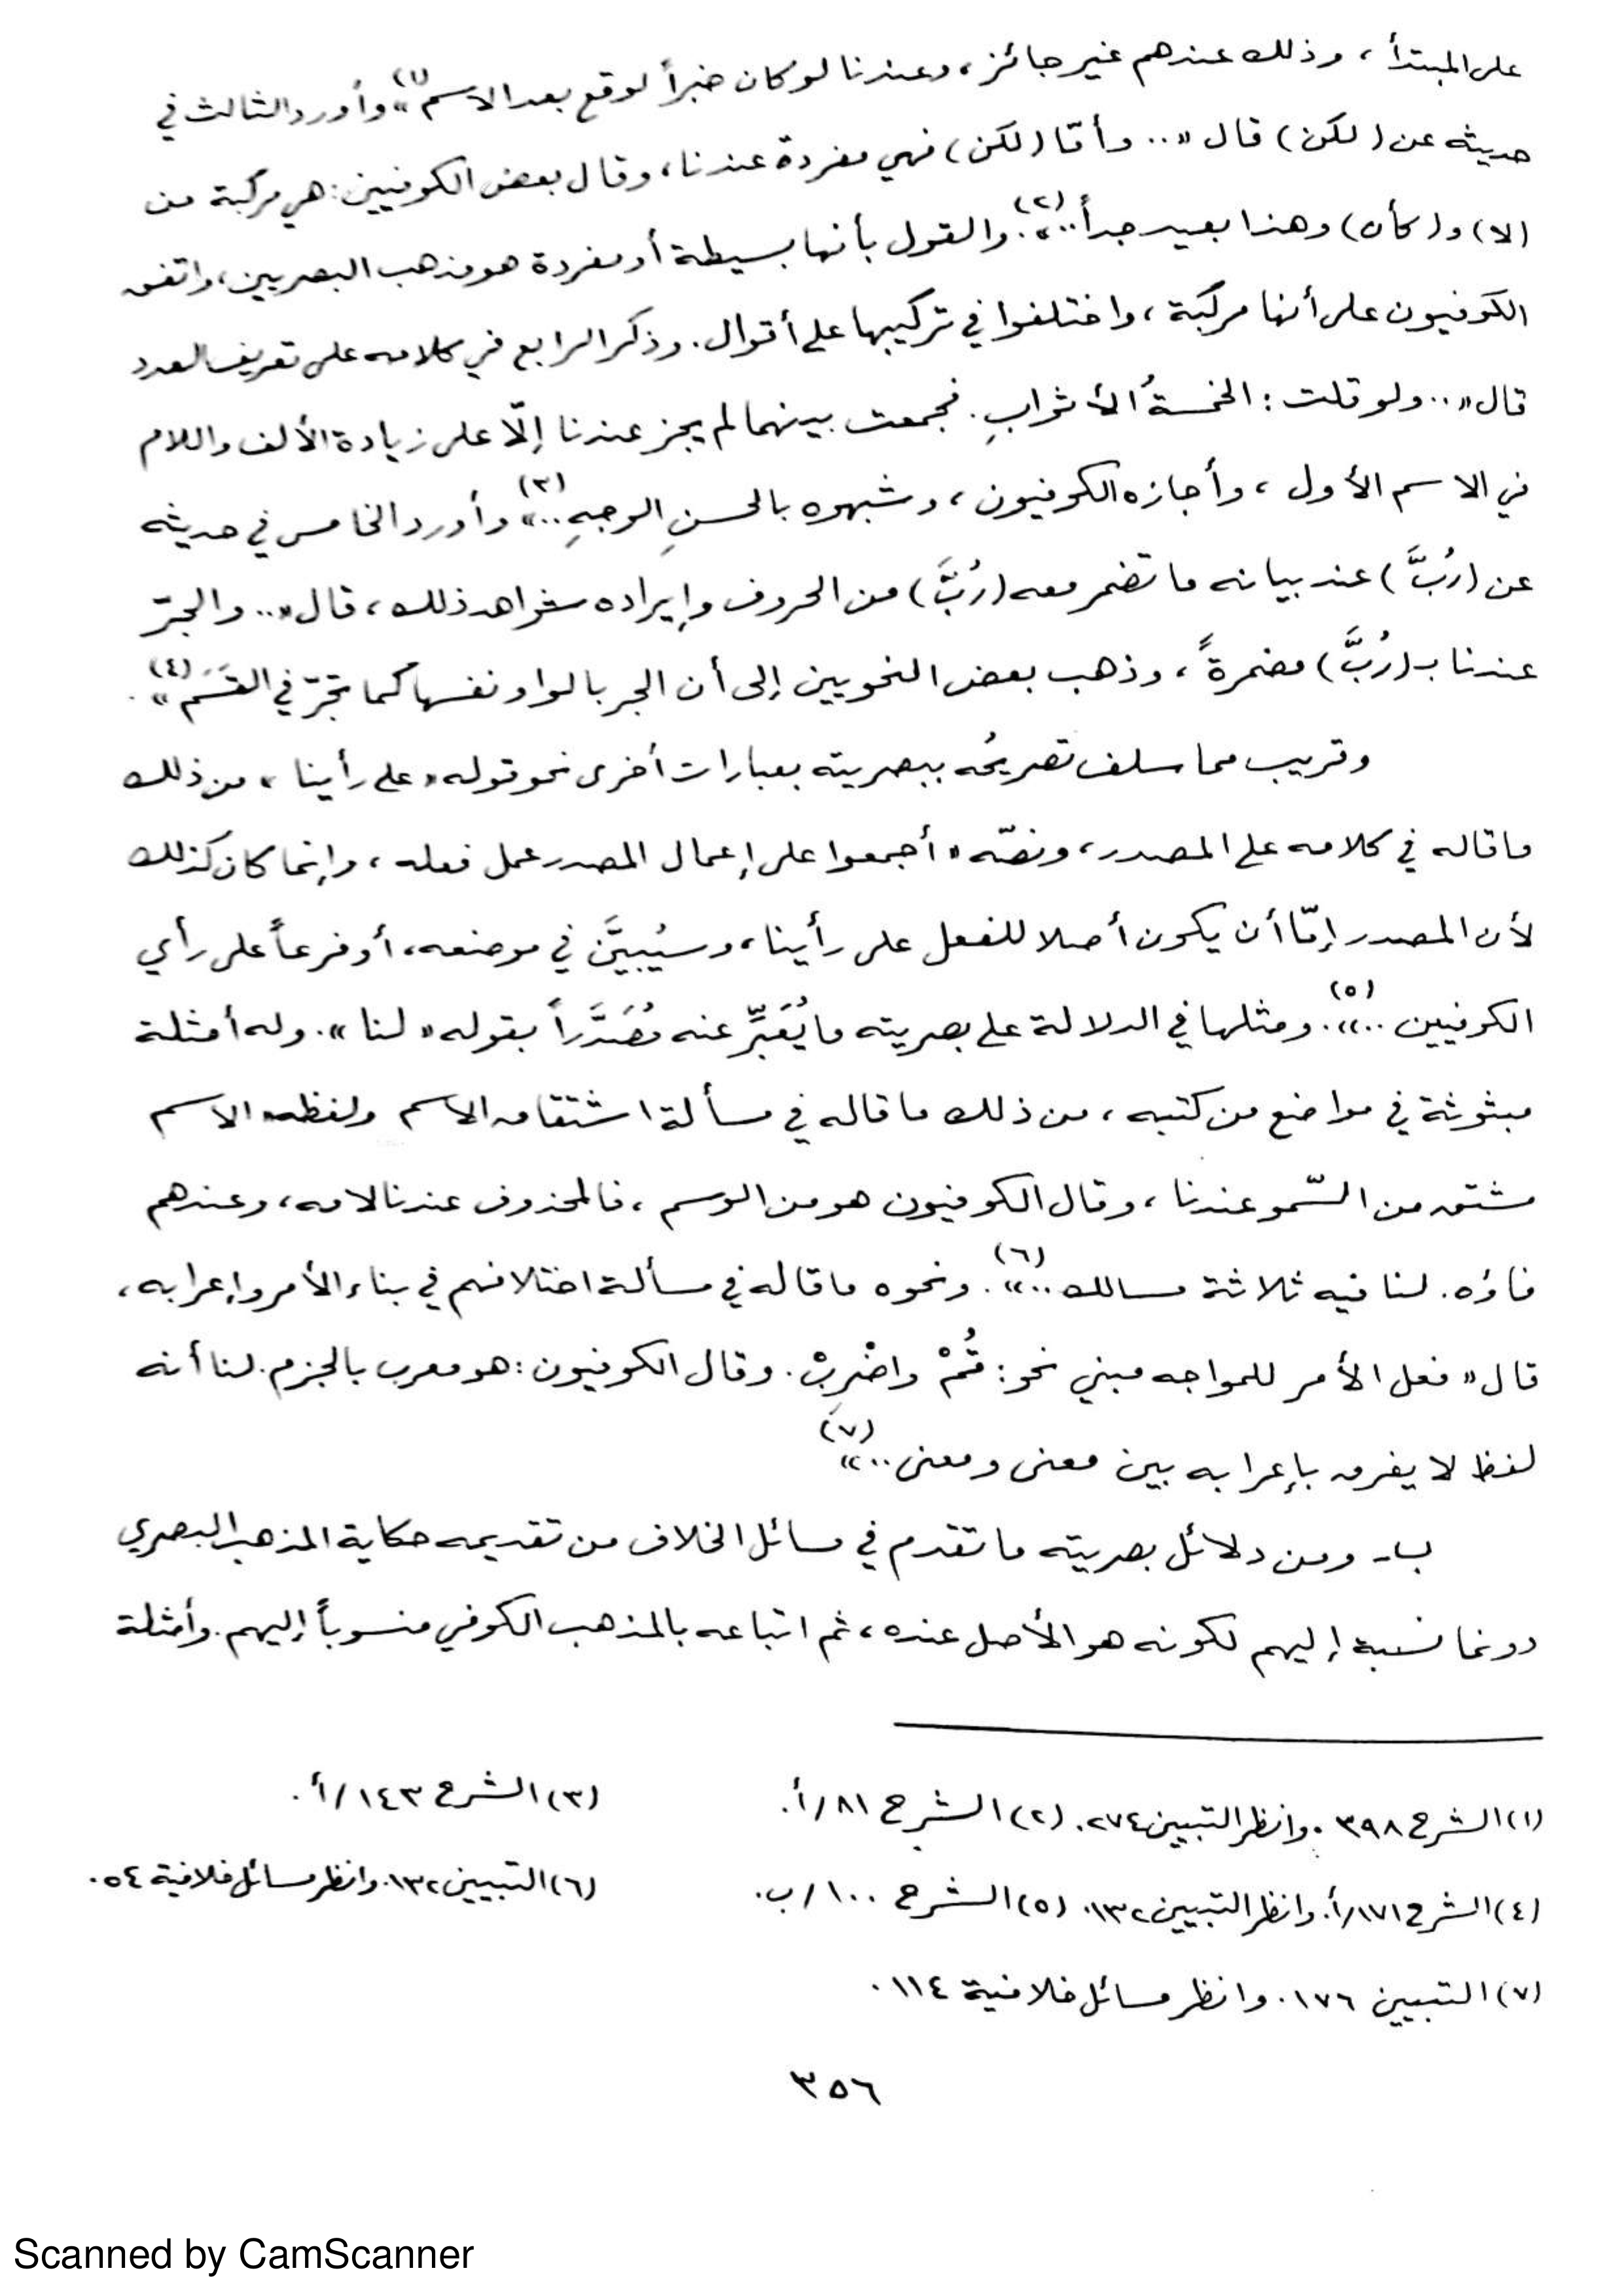 على المبتدأ ، وذلك عندهم غير جائز ، وعندنا لو كان خبراً لوقع بعد الاسم »(١) وأورد الثالث في
حديثه عن (لكن) قال « .. وأمّا (لكن) فهي مفردة عندنا ، وقال بعض الكوفيين : هي مركبة من
(لا) و(كأن) وهذا بعيد جداً .. »(٢). والقول بأنها بسيطة أو مفردة هو مذهب البصريين ، واتفق
الكوفيون على أنها مركبة ، واختلفوا في تركيبها على أقوال . وذكر الرابع في كلامه على تعريف العدد
قال « .. ولو قلت : الخمسةُ الأثوابِ . فجمعت بينهما لم يجز عندنا إلّا على زيادة الألف واللام
في الاسم الأول ، وأجازه الكوفيون ، وشبهوه بالحسنِ الوجهِ .. »(٣) وأورد الخامس في حديثه
عن (رُبَّ) عند بيانه ما تضمر معه (رُبَّ) من الحروف وإيراده شواهد ذلك ، قال « .. والجرّ
عندنا بـ(رُبَّ) مضمرةً ، وذهب بعض النحويين إلى أن الجر بالواو نفسها كما تجرّ في القَسَم »(٤) .
وقريب مما سلف تصريحُه ببصريته بعبارات أخرى نحو قوله « على رأينا » من ذلك
ما قاله في كلامه على المصدر ، ونصّه « أجمعوا على إعمال المصدر عمل فعله ، وإنما كان كذلك
لأن المصدر إمّا أن يكون أصلا للفعل على رأينا ، وسيُبيَّن في موضعه ، أو فرعاً على رأي
الكوفيين .. »(٥). ومثلها في الدلالة على بصريته ما يُعَبِّر عنه مُصَدَّراً بقوله « لنا » . وله أمثلة
مبثوثة في مواضع من كتبه ، من ذلك ما قاله في مسألة اشتقاق الاسم ولفظه « الاسم
مشتق من السّمو عندنا ، وقال الكوفيون هو من الوسم ، فالمحذوف عندنا لامه ، وعندهم
فاؤه . لنا فيه ثلاثة مسالك .. »(٦) . ونحوه ما قاله في مسألة اختلافهم في بناء الأمر وإعرابه ،
قال « فعل الأمر للمواجه مبني نحو : قُمْ واضْرِبْ . وقال الكوفيون : هو معرب بالجزم . لنا أنه
لفظ لا يفرق بإعرابه بين معنى ومعنى .. »(٧)
ب - ومن دلائل بصريته ما تقدم في مسائل الخلاف من تقديمه حكاية المذهب البصري
دونما نسبة إليهم لكونه هو الأصل عنده ، ثم اتباعه بالمذهب الكوفي منسوباً إليهم . وأمثلة
(١) الشرح ٣٩٨ . وانظر التبيين ٢٧٤ . (٢) الشرح ٨١/أ . (٣) الشرح ١٤٣/أ .
(٤) الشرح ١٧١/أ . وانظر التبيين ١٣٢ . (٥) الشرح ١٠٠/ب . (٦) التبيين ١٣٢ . وانظر مسائل خلافية ٥٤ .
(٧) التبيين ١٧٦ . وانظر مسائل خلافية ١١٤ .
٣٥٦
Scanned by CamScanner